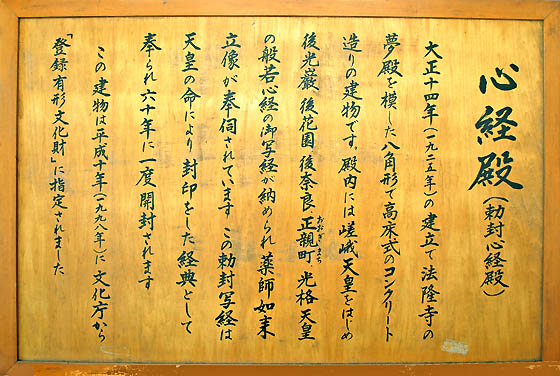 心経殿(勅封心経殿)
大正十四年(一九二五年)の建立で法隆寺の
夢殿を模した八角形で高床式のコンクリート
造りの建物です。殿内には嵯峨天皇をはじめ
後光巌 後花園 後奈良 正親町 光格天皇
おおぎまち
の般若心経の御写経が納められ 薬師如来
立像が奉伺されています この勅封写経は
天皇の命により 封印をした経典として
奉られ六十年に一度開封されます
この建物は平成十年(一九九八年)に文化庁から
「登録有形文化財」に指定されました